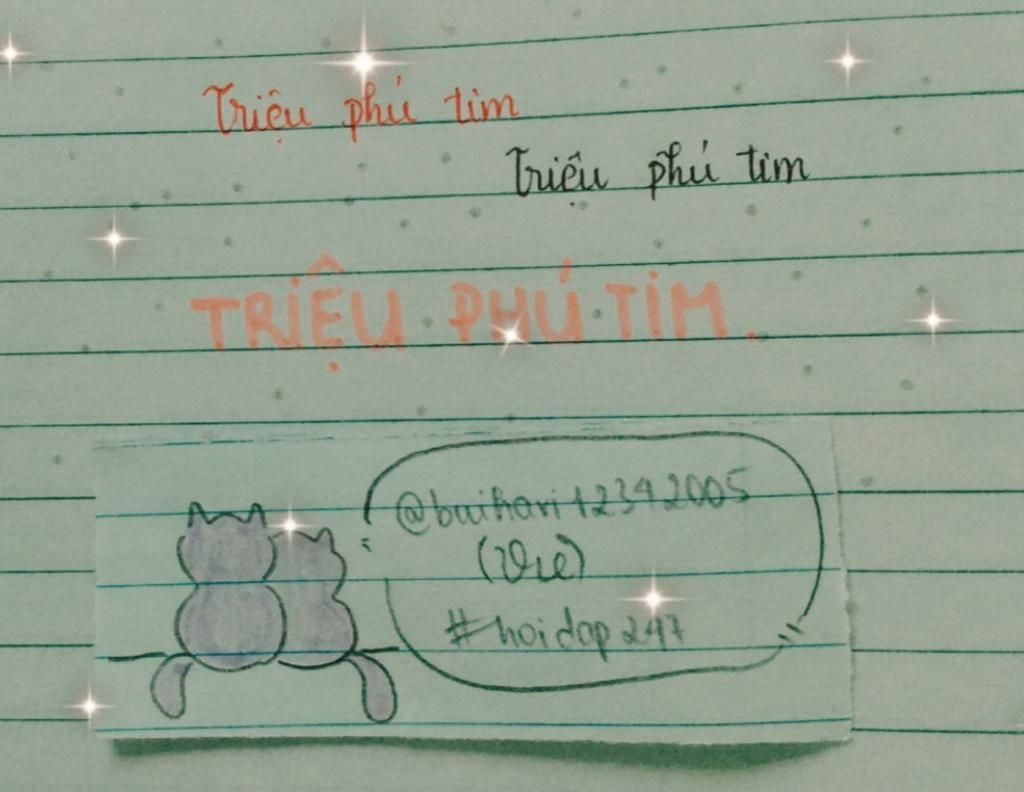 Triệu phú tim
Triệu phú tim
TRIỆU PHÚ TIM.
@buihari12342005
(Vie)
#hoidap247